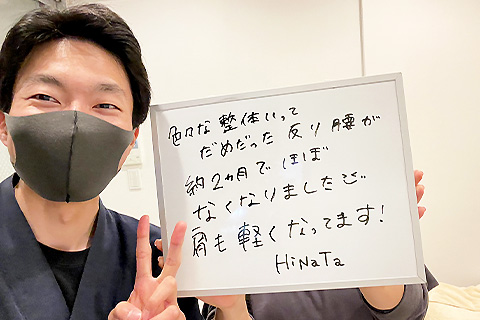 色々な整体いって
だめだった反り腰が
約2ヵ月でほぼ
なくなりました
肩も軽くなってます!
HiNaTa